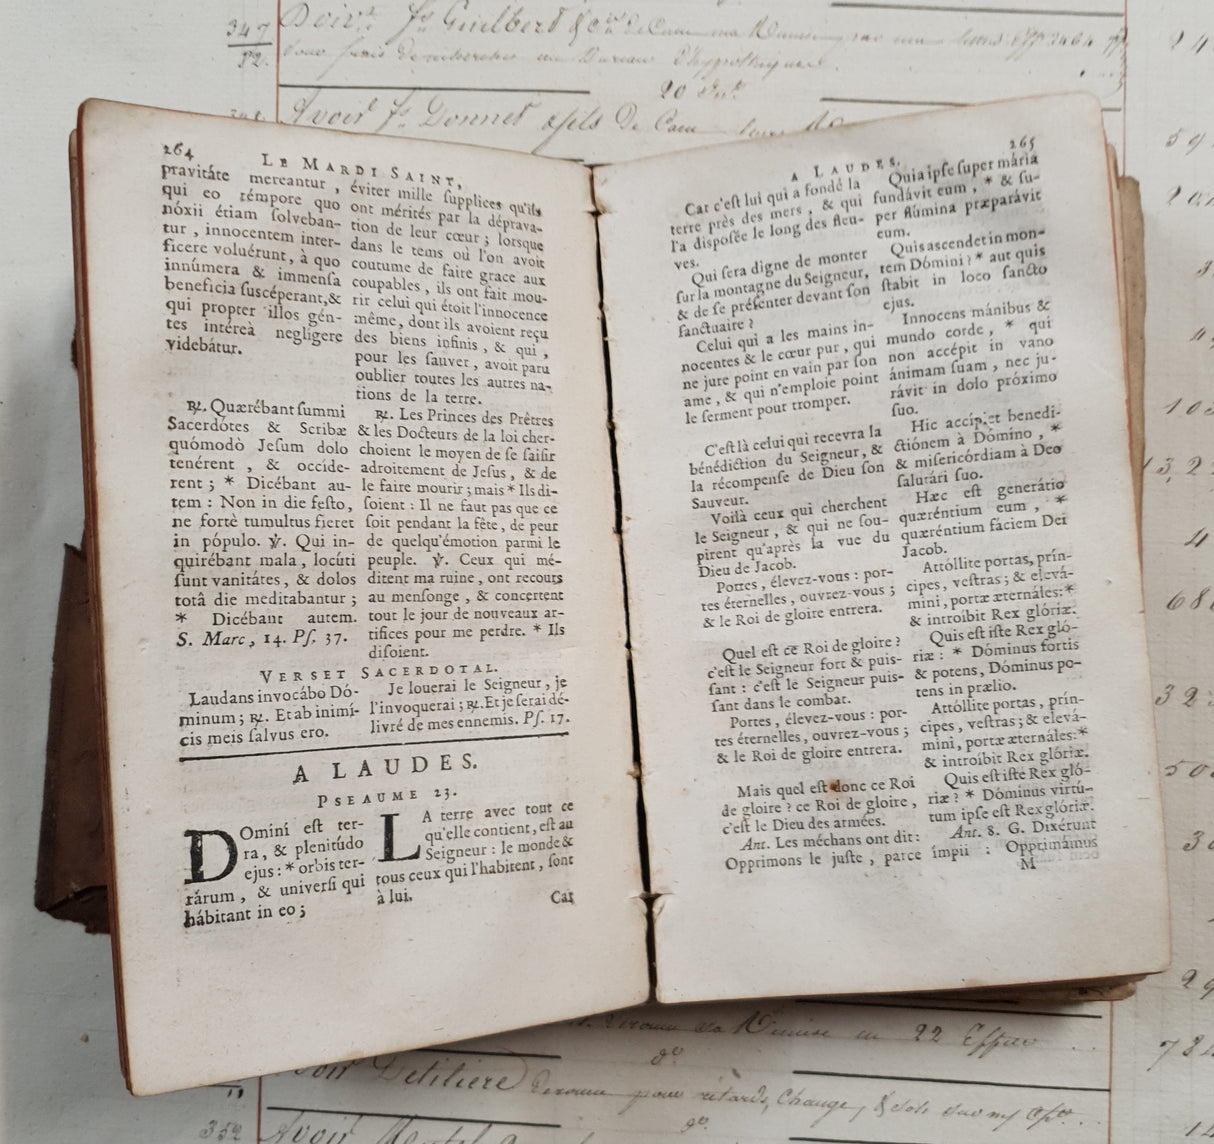 347
52.
Doiv.t
20
Avoir
Donnet & fils de Caen
264
LE MARDI SAINT,
pravitáte mereantur,
qui eo témpore quo
nóxii étiam solveban-
tur, innocentem inter-
ficere voluérunt, à quo
innúmera & immensa
beneficia suscéperant, &
qui propter illos gén-
tes intéreà negligere
videbátur.
℟. Quærébant summi
Sacerdótes & Scribæ
quómodò Jesum dolo
tenérent, & occíde-
rent; * Dicébant au-
tem: Non in die festo,
ne fortè tumultus fieret
in pópulo. ℣. Qui in-
quirébant mala, locúti
sunt vanitátes, & dolos
totâ die meditabantur;
* Dicébant autem.
S. Marc, 14. Ps. 37.
éviter mille supplices qu'ils
ont mérités par la déprava-
tion de leur cœur; lorsque
dans le tems où l'on avoit
coutume de faire grace aux
coupables, ils ont fait mou-
rir celui qui étoit l'innocence
même, dont ils avoient reçu
des biens infinis, & qui,
pour les sauver, avoit paru
oublier toutes les autres na-
tions de la terre.
℟. Les Princes des Prêtres
& les Docteurs de la loi cher-
choient le moyen de se saisir
adroitement de Jesus, & de
le faire mourir; mais * Ils di-
soient: Il ne faut pas que ce
soit pendant la fête, de peur
de quelqu'émotion parmi le
peuple. ℣. Ceux qui mé-
ditent ma ruine, ont recours
au mensonge, & concertent
tout le jour de nouveaux ar-
tifices pour me perdre. * Ils
disoient.
VERSET SACERDOTAL.
Laudans invocábo Dó-
minum; ℟. Et ab inimí-
cis meis salvus ero.
Je louerai le Seigneur, je
l'invoquerai; ℟. Et je serai dé-
livré de mes ennemis. Ps. 17.
A LAUDES.
PSEAUME 23.
DOmini est ter-
ra, & plenitúdo
ejus: * orbis ter-
rárum, & universi qui
hábitant in eo;
LA terre avec tout ce
qu'elle contient, est au
Seigneur: le monde &
tous ceux qui l'habitent, sont
à lui.
Car
A LAUDES.
265
Car c'est lui qui a fondé la
terre près des mers, & qui
l'a disposée le long des fleu-
ves.
Qui sera digne de monter
sur la montagne du Seigneur,
& de se présenter devant son
sanctuaire?
Celui qui a les mains in-
nocentes & le cœur pur, qui
ne jure point en vain par son
ame, & qui n'emploie point
le serment pour tromper.
C'est là celui qui recevra la
bénédiction du Seigneur, &
la récompense de Dieu son
Sauveur.
Voilà ceux qui cherchent
le Seigneur, & qui ne sou-
pirent qu'après la vue du
Dieu de Jacob.
Portes, élevez-vous: por-
tes éternelles, ouvrez-vous;
& le Roi de gloire entrera.
Quel est ce Roi de gloire?
c'est le Seigneur fort & puis-
sant: c'est le Seigneur puis-
sant dans le combat.
Portes, élevez-vous: por-
tes éternelles, ouvrez-vous;
& le Roi de gloire entrera.
Mais quel est donc ce Roi
de gloire? ce Roi de gloire,
c'est le Dieu des armées.
Ant. Les méchans ont dit:
Opprimons le juste, parce
Quia ipse super mária
fundávit eum, * & su-
per flúmina præparávit
eum.
Quis ascendet in mon-
tem Dómini? * aut quis
stabit in loco sancto
ejus.
Innocens mánibus &
mundo corde, * qui
non accépit in vano
ánimam suam, nec ju-
rávit in dolo próximo
suo.
Hic accípiet benedi-
ctiónem à Dómino, *
& misericórdiam à Deo
salutári suo.
Hæc est generátio
quæréntium eum, *
quæréntium fáciem Dei
Jacob.
Attóllite portas, prín-
cipes, vestras; & elevá-
mini, portæ æternáles: *
& introíbit Rex glóriæ.
Quis est iste Rex gló-
riæ: * Dóminus fortis
& potens, Dóminus po-
tens in prælio.
Attóllite portas, prín-
cipes, vestras; & elevá-
mini, portæ æternáles: *
& introíbit Rex glóriæ.
Quis est isté Rex gló-
riæ? * Dóminus virtú-
tum ipse est Rex glóriæ.
Ant. 8. G. Dixérunt
ímpii: Opprimámus
M
22
Avoir
352
Avoir